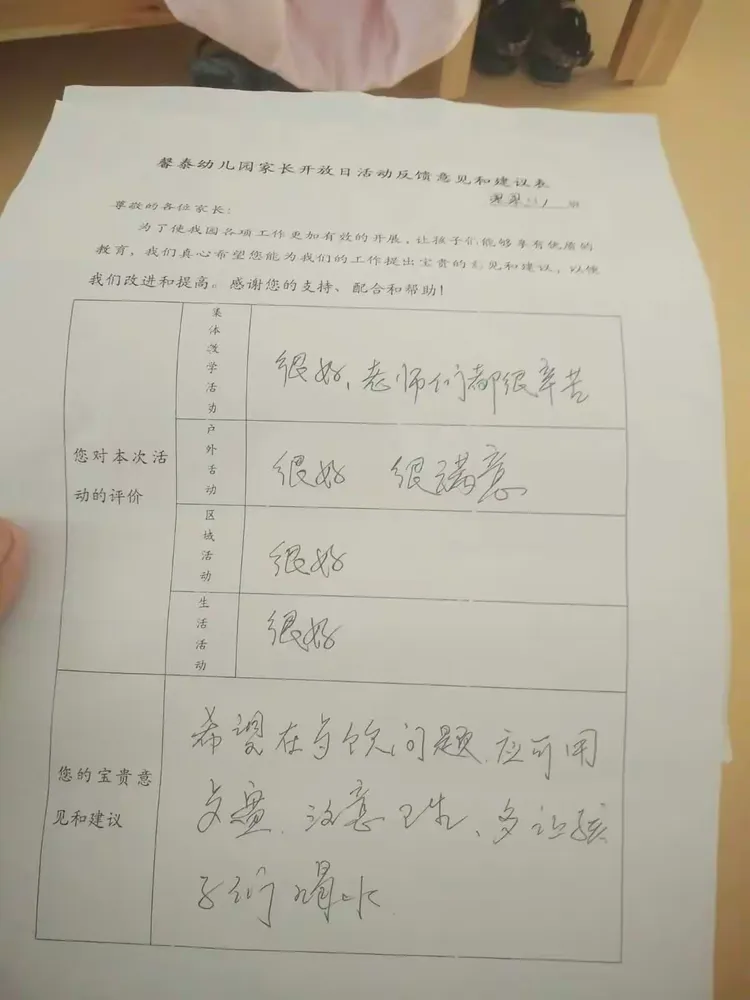 馨泰幼儿园家长开放日活动反馈意见和建议表
1 班
尊敬的各位家长：
为了使我园各项工作更加有效的开展，让孩子们能够享有优质的
教育，我们真心希望您能为我们的工作提出宝贵的意见和建议，以便
我们改进和提高。感谢您的支持、配合和帮助！
您对本次活
动的评价
集体教学活动
很好、老师们都很辛苦
户外活动
很好 很满意
区域活动
很好
生活活动
很好
您的宝贵意
见和建议
希望在 饮问题、应可用
注意卫生、多让孩
子们喝水